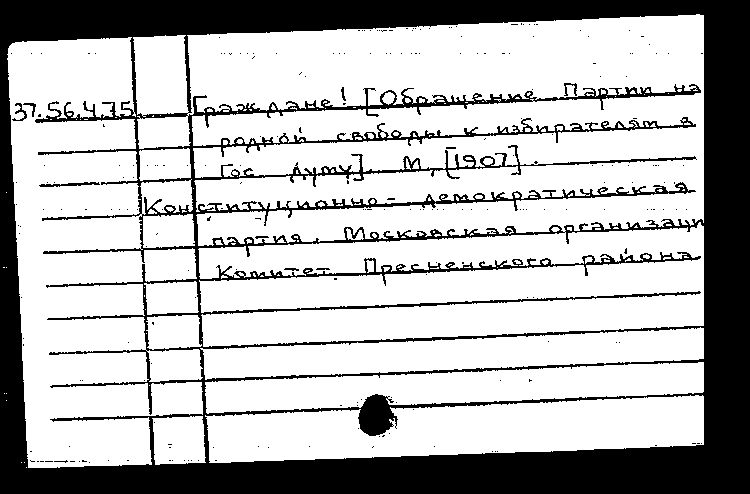 37.56.4.75 Граждане! [Обращение Партии на
родной свободы к избирателям в
Гос Думу]. М, [1907].
Конституционно-демократическая
партия. Московская организаци
Комитет Пресненского района